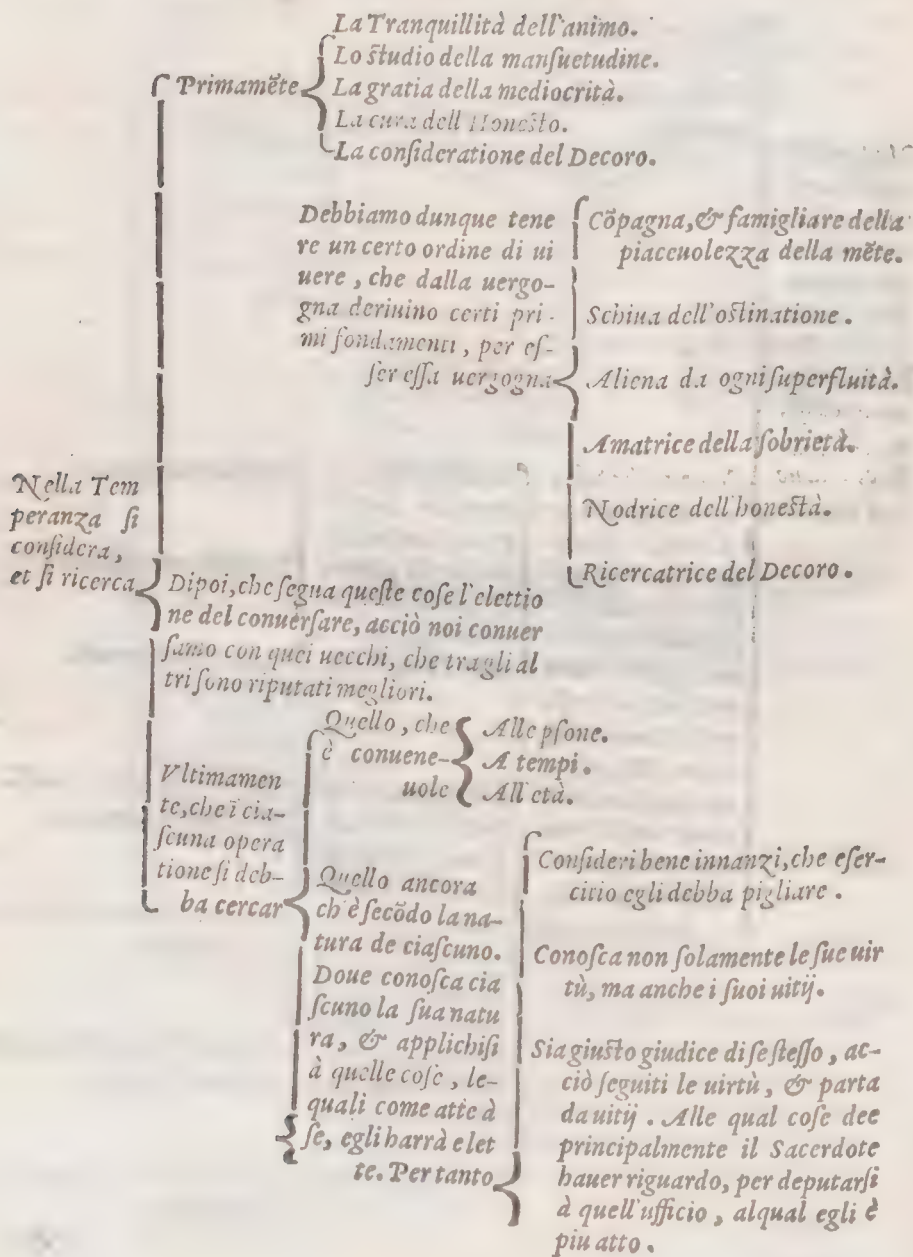 Nella Tem
peranza ſi
conſidera,
et ſi ricerca
Primamẽte
La Tranquillità dell'animo.
Lo ſtudio della manſuetudine.
La gratia della mediocrità.
La cura dell Honeſto.
La conſideratione del Decoro.
Debbiamo dunque tene
re un certo ordine di ui
uere, che dalla uergo-
gna deriuino certi pri-
mi fondamenti, per eſ-
ſer eſſa uergogna
Cõpagna, & famigliare della
piaceuolezza della mẽte.
Schiua dell'oſtinatione.
Aliena da ogni ſuperfluità.
Amatrice della ſobrietà.
Nodrice dell'honeſtà.
Ricercatrice del Decoro.
Dipoi, che ſegua queſte coſe l'elettio
ne del conuerſare, acciò noi conuer
ſamo con quei uecchi, che tra gli al
tri ſono riputati megliori.
Vltimamen
te, che ĩ cia-
ſcuna opera
tione ſi deb-
ba cercar
Quello, che
è conuene-
uole
Alle pſone.
A tempi.
All'età.
Quello ancora
ch'è ſecõdo la na-
tura de ciaſcuno.
Doue conoſca cia
ſcuno la ſua natu
ra, & applichiſi
à quelle coſe, le-
quali come atte à
ſe, egli harrà elet
te. Per tanto
Conſideri bene innanzi, che eſer-
citio egli debba pigliare.
Conoſca non ſolamente le ſue uir
tù, ma anche i ſuoi uitij.
Sia giuſto giudice di ſe ſteſſo, ac-
ciò ſeguiti le uirtù, & parta
da uitij. Alle qual coſe dee
principalmente il Sacerdote
hauer riguardo, per deputarſi
à quell'ufficio, alqual egli è
piu atto.